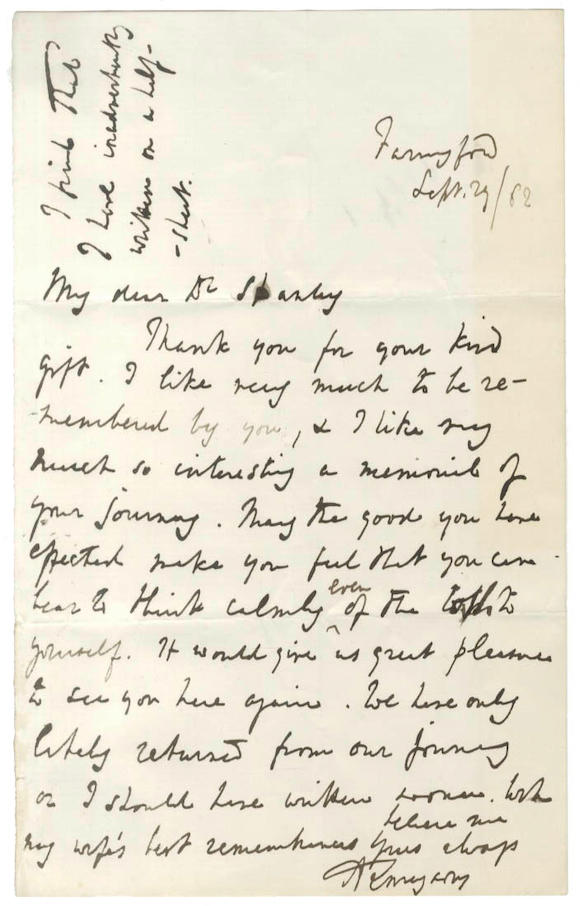 I find that
I have inadvertently
written on a half-
-sheet.
Farringford
Sept. 29/62
My dear Dr Stanley
Thank you for your kind
gift. I like very much to be re-
-membered by you, & I like very
much so interesting a memorial of
your journey. May the good you have
effected make you feel that you can
bear to think calmly even of the loss to
yourself. It would give us great pleasure
to see you here again. We have only
lately returned from our journey
or I should have written sooner. With
my wife's best remembrances believe me
yours always
ATennyson